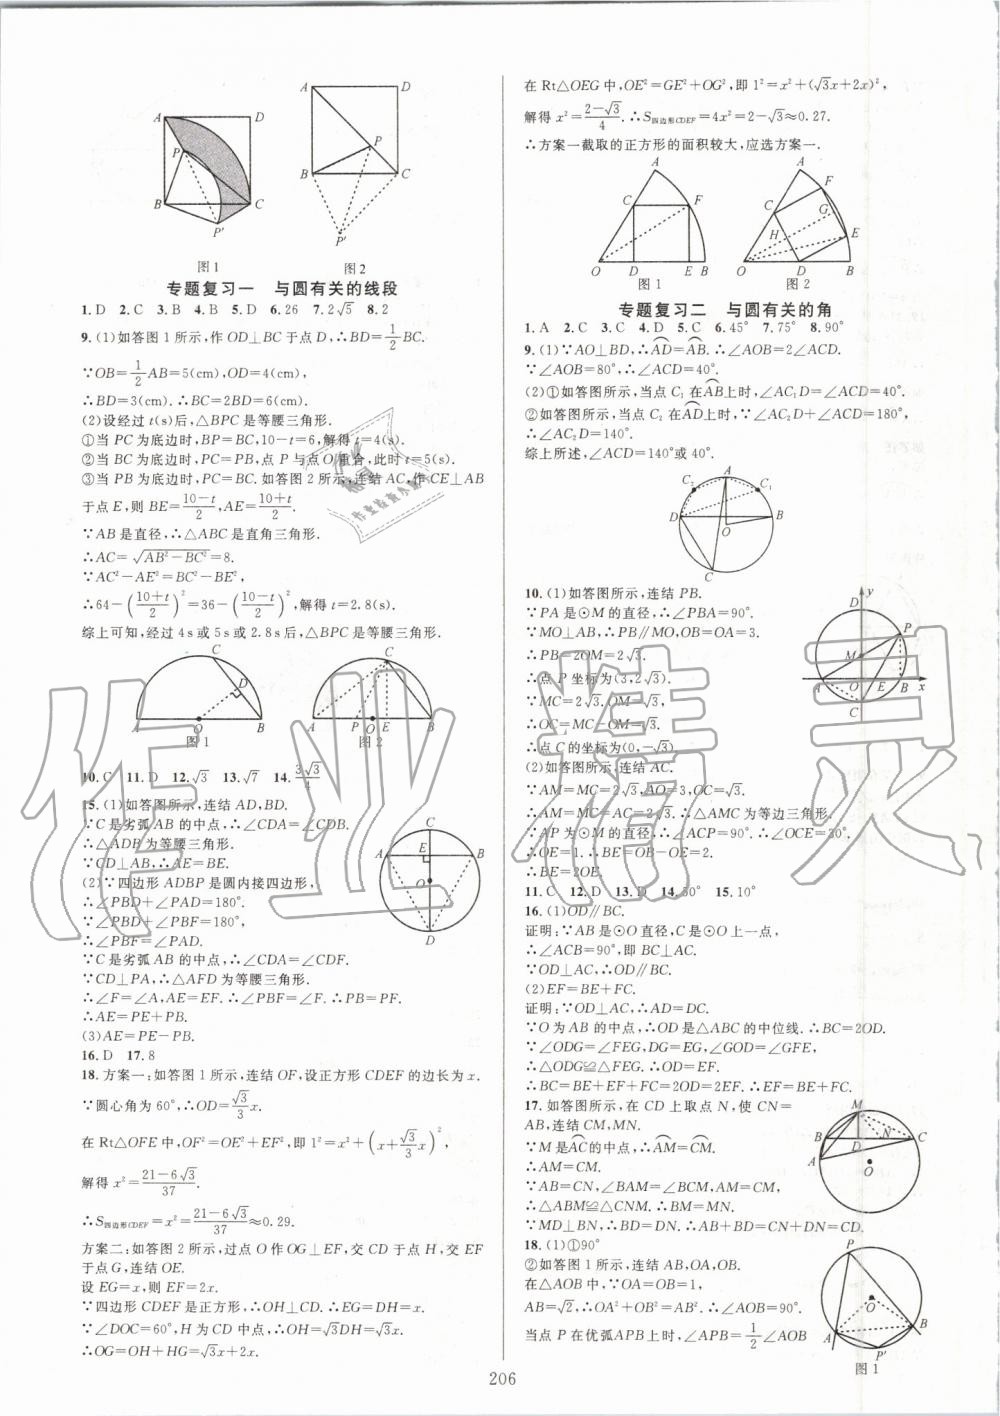 图1
图2
专题复习一 与圆有关的线段
1. D 2. C 3. B 4. B 5. D 6. 26 7. 2√5 8. 2
9. (1)如答图1所示,作OD⊥BC于点D,∴BD=1/2BC.
∵OB=1/2AB=5(cm),OD=4(cm),
∴BD=3(cm).∴BC=2BD=6(cm).
(2)设经过t(s)后,△BPC是等腰三角形.
①当PC为底边时,BP=BC,10-t=6,解得t=4(s).
②当BC为底边时,PC=PB,点P与点O重合,此时t=5(s).
③当PB为底边时,PC=BC.如答图2所示,连结AC,作CE⊥AB
于点E,则BE=(10-t)/2,AE=(10+t)/2.
∵AB是直径,∴△ABC是直角三角形.
∴AC=√(AB²-BC²)=8.
∵AC²-AE²=BC²-BE²,
∴64-((10+t)/2)²=36-((10-t)/2)²,解得t=2.8(s).
综上可知,经过4s或5s或2.8s后,△BPC是等腰三角形.
图1
图2
10. C 11. D 12. √3 13. √7 14. 3√3/4
15. (1)如答图所示,连结AD,BD.
∵C是劣弧AB的中点,∴∠CDA=∠CDB.
∴△ADB为等腰三角形.
∵CD⊥AB,∴AE=BE.
(2)∵四边形ADBP是圆内接四边形,
∴∠PBD+∠PAD=180°.
∵∠PBD+∠PBF=180°,
∴∠PBF=∠PAD.
∵C是劣弧AB的中点,∴∠CDA=∠CDF.
∵CD⊥PA,∴△AFD为等腰三角形.
∴∠F=∠A,AE=EF.∴∠PBF=∠F.∴PB=PF.
∴AE=PE+PB.
(3)AE=PE-PB.
16. D 17. 8
18. 方案一:如答图1所示,连结OF,设正方形CDEF的边长为x.
∵圆心角为60°,∴OD=√3/3x.
在Rt△OFE中,OF²=OE²+EF²,即1²=x²+(x+√3/3x)²,
解得x²=(21-6√3)/37.
∴S四边形CDEF=x²=(21-6√3)/37≈0.29.
方案二:如答图2所示,过点O作OG⊥EF,交CD于点H,交EF
于点G,连结OE.
设EG=x,则EF=2x.
∵四边形CDEF是正方形,∴OH⊥CD.∴EG=DH=x.
∵∠DOC=60°,H为CD中点,∴OH=√3DH=√3x.
∴OG=OH+HG=√3x+2x.
在Rt△OEG中,OE²=GE²+OG²,即1²=x²+(√3x+2x)²,
解得x²=(2-√3)/4.∴S四边形CDEF=4x²=2-√3≈0.27.
∴方案一截取的正方形的面积较大,应选方案一.
图1
图2
专题复习二 与圆有关的角
1. A 2. C 3. C 4. D 5. C 6. 45° 7. 75° 8. 90°
9. (1)∵AO⊥BD,∴AD=AB.∴∠AOB=2∠ACD.
∵∠AOB=80°,∴∠ACD=40°.
(2)①如答图所示,当点C₁在AB上时,∠AC₁D=∠ACD=40°;
②如答图所示,当点C₂在AD上时,∵∠AC₂D+∠ACD=180°,
∴∠AC₂D=140°.
综上所述,∠ACD=140°或40°.
10. (1)如答图所示,连结PB.
∵PA是⊙M的直径,∴∠PBA=90°.
∵MO⊥AB,∴PB∥MO,OB=OA=3.
∴PB=2OM=2√3.
∴点P坐标为(3,2√3).
∵MC=2√3,OM=√3,
∴OC=MC-OM=√3.
∴点C的坐标为(0,-√3).
(2)如答图所示,连结AC.
∵AM=MC=2√3,AO=3,OC=√3.
∴AM=MC=AC=2√3.∴△AMC为等边三角形.
∵AP为⊙M的直径,∴∠ACP=90°.∴∠OCE=30°.
∴OE=1.∴BE=OB-OE=2.
∴BE=2OE.
11. C 12. D 13. D 14. 50° 15. 10°
16. (1)OD∥BC.
证明:∵AB是⊙O直径,C是⊙O上一点,
∴∠ACB=90°,即BC⊥AC.
∵OD⊥AC,∴OD∥BC.
(2)EF=BE+FC.
证明:∵OD⊥AC,∴AD=DC.
∵O为AB的中点,∴OD是△ABC的中位线.∴BC=2OD.
∵∠ODG=∠FEG,DG=EG,∠OGD=∠GFE,
∴△ODG≌△FEG.∴OD=EF.
∴BC=BE+EF+FC=2OD=2EF.∴EF=BE+FC.
17. 如答图所示,在CD上取点N,使CN=
AB,连结CM,MN.
∵M是AC的中点,∴AM=CM.
∴AM=CM.
∵AB=CN,∠BAM=∠BCM,AM=CM,
∴△ABM≌△CNM.∴BM=MN.
∵MD⊥BN,∴BD=DN.∴AB+BD=CN+DN=CD.
18. (1)①90°
②如答图所示,连结AB,OA,OB.
在△AOB中,∵OA=OB=1,
AB=√2,∴OA²+OB²=AB².∴∠AOB=90°.
当点P在优弧APB上时,∠APB=1/2∠AOB
图1
206